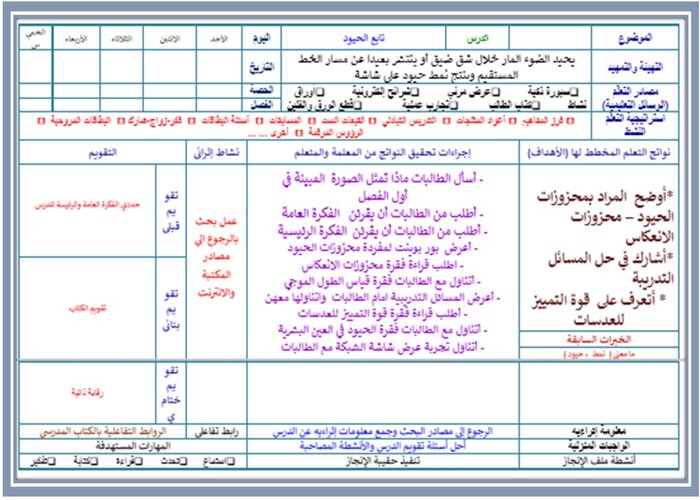 الموضوع
الدرس
تابع الحيود
اليوم
الأحد
الاثنين
الثلاثاء
الأربعاء
الخميس
التهيئة والتمهيد
يحيد الضوء المار خلال شق ضيق أو ينتشر بعيدا عن مسار الخط
المستقيم وينتج نمط حيود على شاشة
التاريخ
مصادر التعلم
(الوسائل التعليمية)
سبورة ذكية عرض مرئي شرائح إلكترونية أوراق
نشاط كتاب الطالب تجارب عملية قطع الورق والفلين
الحصة
الفصل
استراتيجية التعلم
النشط
فرز المفاهيم أعواد المثلجات التدريس التبادلي القبعات الست المسابقات أسئلة البطاقات فكر-زواج-شارك البطاقات المروحية
الرؤوس المرقمة أخرى ... ...
نواتج التعلم المخطط لها (الأهداف)
إجراءات تحقيق النواتج من المعلمة والمتعلم
نشاط إثرائي
التقويم
*أوضح المراد بمحزوزات
الحيود – محزوزات
الانعكاس
*أشارك في حل المسائل
التدريبية
* أتعرف على قوة التمييز
للعدسات
الخبرات السابقة
ما معنى ( نمط ، حيود )
- أسأل الطالبات ماذا تمثل الصورة المبينة في
أول الفصل
- أطلب من الطالبات أن يقرئن الفكرة العامة
- أطلب من الطالبات أن يقرئن الفكرة الرئيسية
- أعرض بور بوينت لمفردة محزوزات الحيود
- اطلب قراءة فقرة محزوزات الانعكاس
- أتناول مع الطالبات فقرة قياس الطول الموجي
- أعرض المسائل التدريبية امام الطالبات واتناولها معهن
- أطلب قراءة فقرة قوة التمييز للعدسات
- أتناول مع الطالبات فقرة الحيود في العين البشرية
- أتناول تجربة عرض شاشة الشبكة مع الطالبات
عمل بحث
بالرجوع الي
مصادر
المكتبة
والانترنت
تقو
يم
قبلى
حددي الفكرة العامة والرئيسة للدرس
تقو
يم
بنائى
تقويم الكتاب
تقو
يم
ختام
ي
رقابة ذاتية
معلومة إثرائيه
الرجوع إلى مصادر البحث وجمع معلومات إثرائيه عن الدرس
رابط تفاعلى
الروابط التفاعلية بالكتاب المدرسي
الواجبات المنزلية
أحل أسئلة تقويم الدرس والأنشطة المصاحبة
المهارات المستهدفة
أنشطة ملف الإنجاز
تنفيذ حقيبة الإنجاز
استماع تحدث قراءة كتابة تفكير